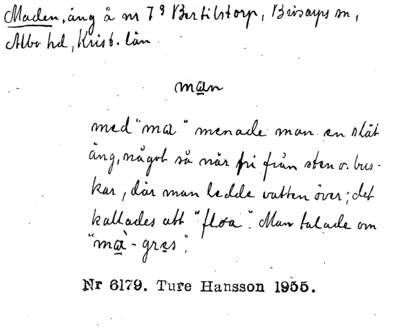 Maden, äng å nr 7⁹ Bertilstorp, Brösarps sn,
Albo hd, Krist. län.
man
med "ma" menade man en slät
äng, något så när fri från sten o. bus-
kar, där man ledde vatten över; det
kallades att "floa". Man talade om
"ma-gres".
Nr 6179. Ture Hansson 1955.